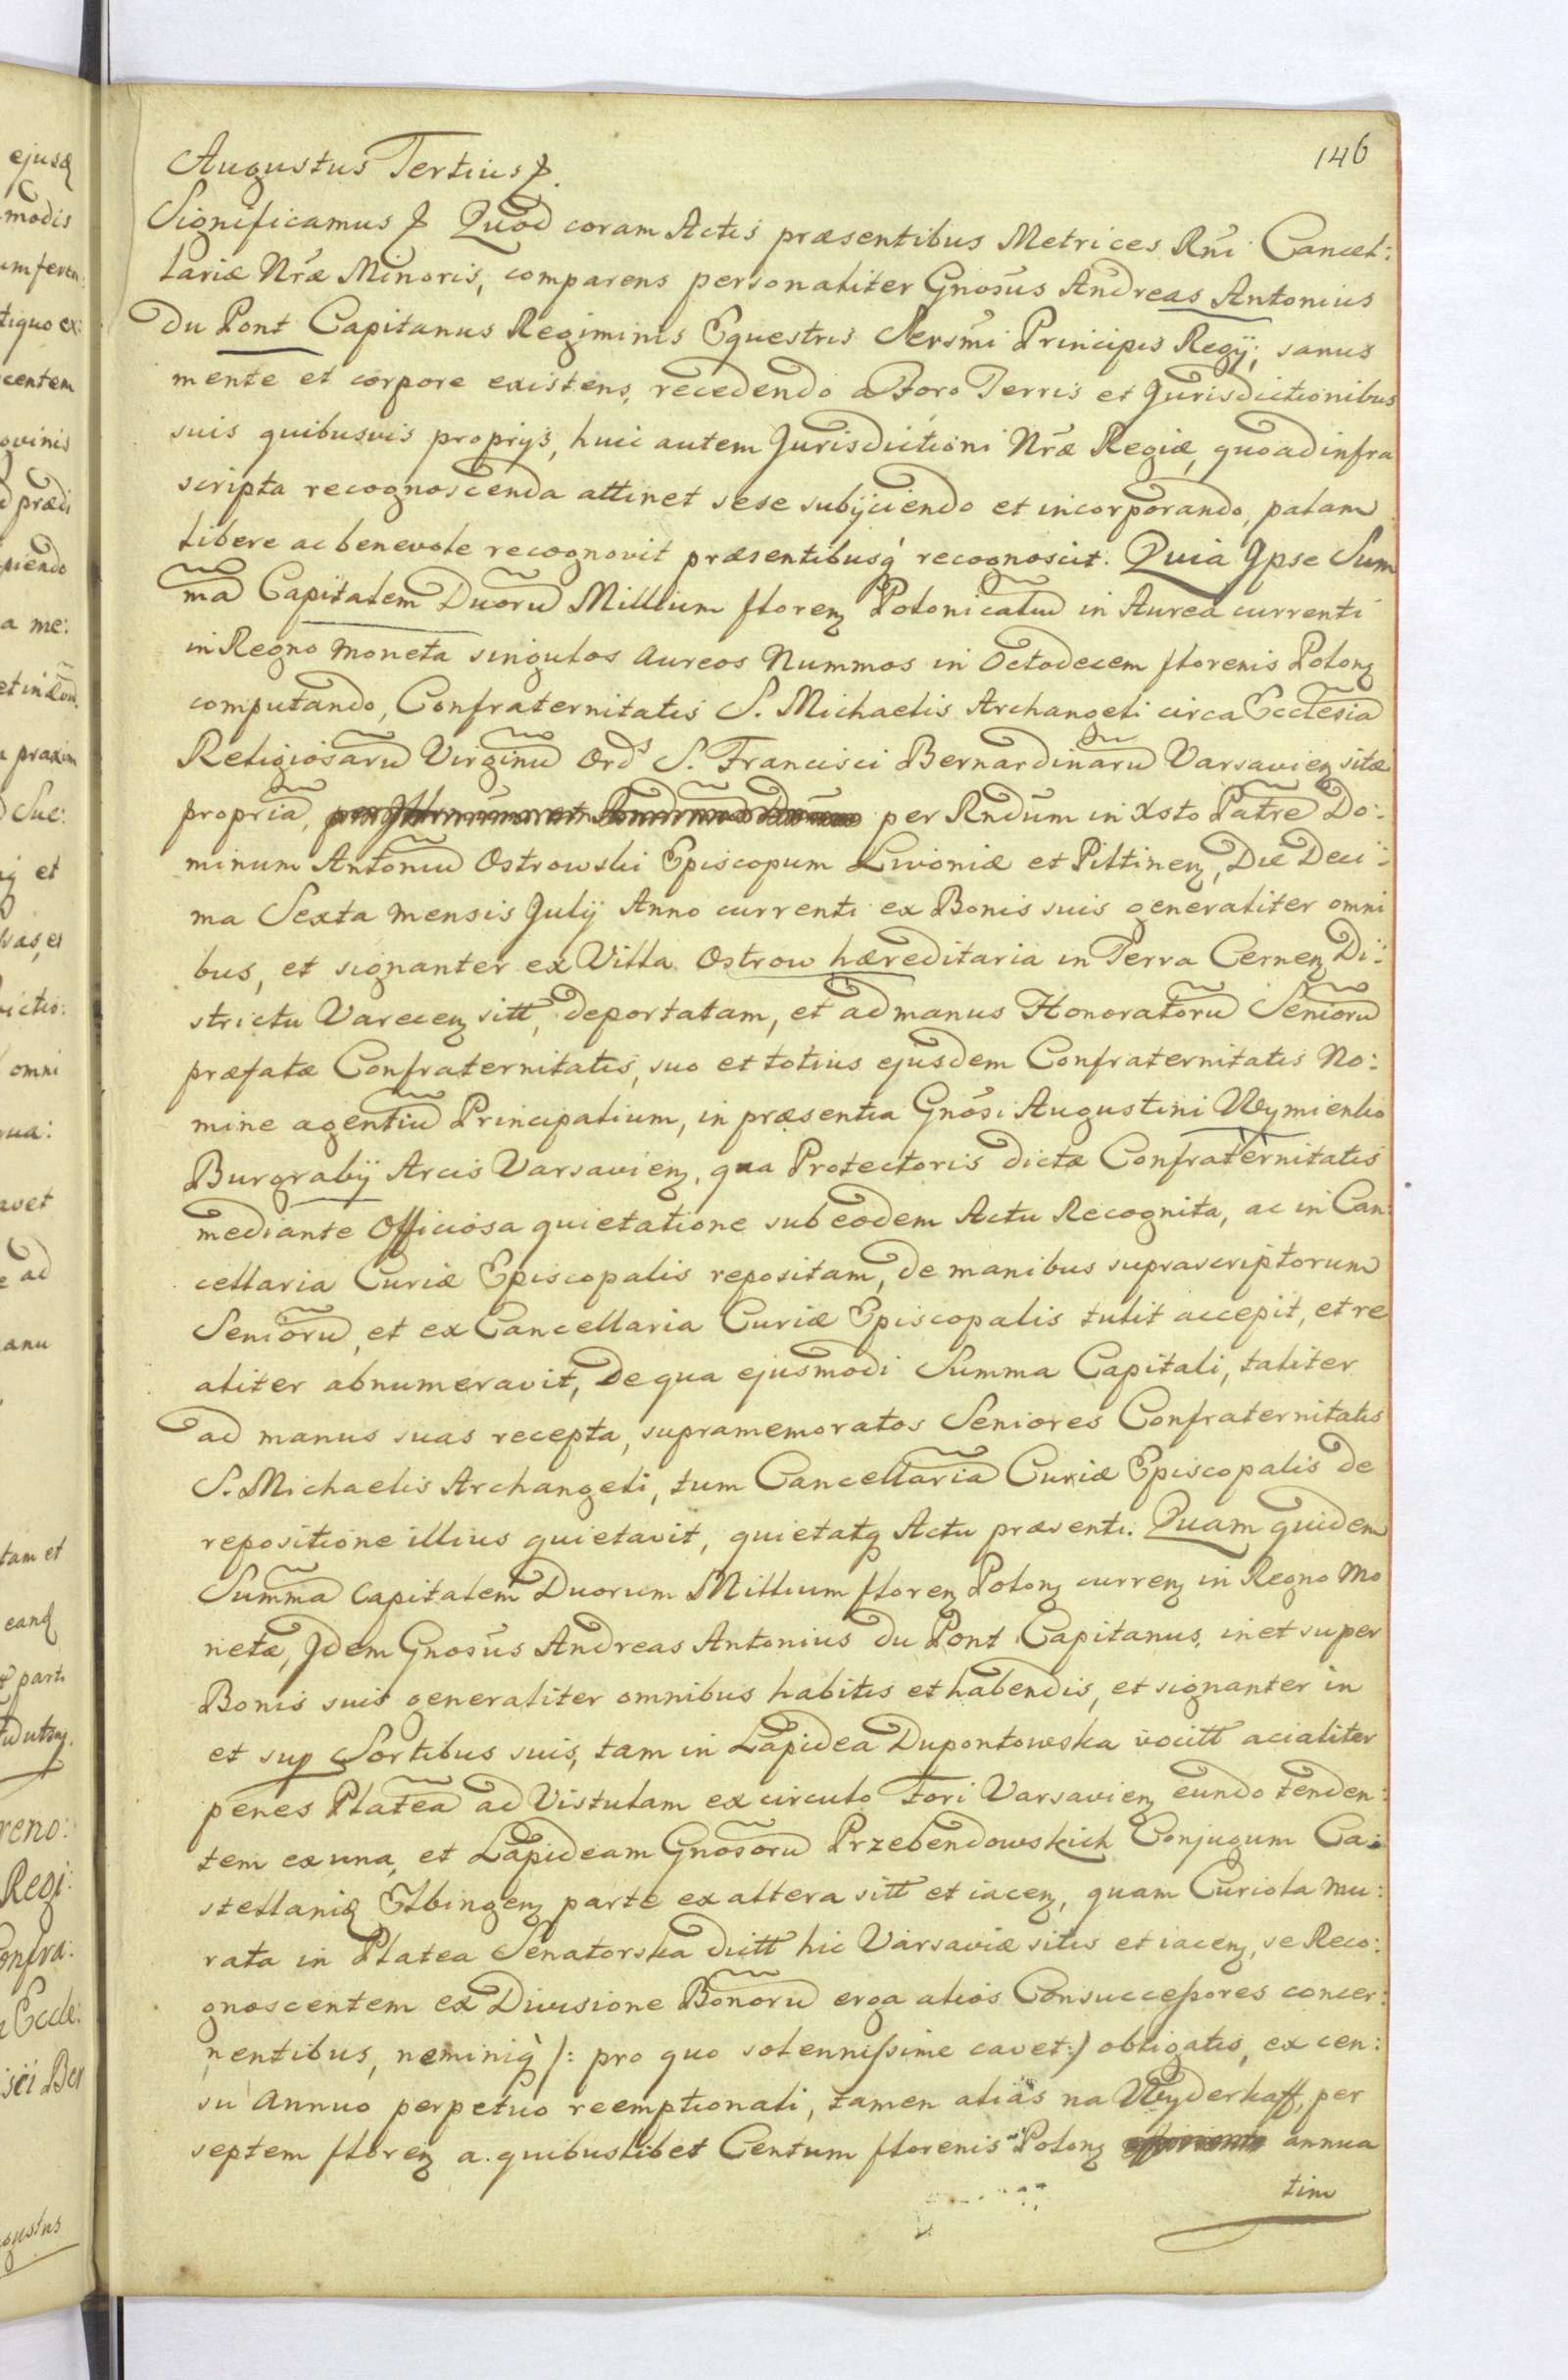 146
Augustus Tertius
Significamus Quod coram Actis præsentibus Metrices Rñi Cancel:
lariæ Nræ Minoris, comparens personaliter Gnosus Andreas Antonius
Du Pont Capitanus Regiminis Equestris Sersmi Principis Regÿ, sanus
mente et corpore existens, recedendo a Foro Terris et Jurisdictionibus
suis quibusvis proprÿs, huic autem Jurisdictioni Nræ Regiæ, quoad infra
scripta recognoscenda attinet sese subÿciendo et incorporando, palam
libere ac benevole recognovit præsentibusq recognoscit. Quia Ipse Sum
ma Capitalem Duoru Millium floren Polonicaliu in Aurea currenti
in Regno moneta singulos Aureos Nummos in Octodecem florenis Polon
computando, Confraternitatis S. Michaelis Archangeli circa Ecclesia
Religiosaru Virginu Ord S. Francisci Bernardinaru Varsavien sitæ
propria, per Rndum in Xsto Patre Do:
minum Antoniu Ostrowski Episcopum Livoniæ et Piltinen, Die Deci:
ma Sexta mensis Julÿ Anno currenti ex Bonis suis generaliter omni
bus, et signanter ex Villa Ostrow hæreditaria in Terra Cernen Di:
strictu Varecen sitt, deportatam, et ad manus Honoratoru Senioru
præfatæ Confraternitatis, suo et totius ejusdem Confraternitatis No:
mine agentiu Principalium, in præsentia Gnosi Augustini Wymienko
Burgrabÿ Arcis Varsavien, qua Protectoris dictæ Confraternitatis
mediante Officiosa quietatione sub eodem Actu Recognita, ac in Can:
cellaria Curiæ Episcopalis repositam, de manibus suprascriptorum
Senioru, et ex Cancellaria Curiæ Episcopalis tulit accepit, et re
aliter abnumeravit, De qua ejusmodi Summa Capitali, taliter
ad manus suas recepta, supramemoratos Seniores Confraternitatis
S. Michaelis Archangeli, tum Cancellaria Curiæ Episcopalis de
repositione illius quietavit, quietatq Actu præsenti. Quam quidem
Summa Capitalem Duorum Millium floren Polon curren in Regno Mo
netæ, Idem Gnosus Andreas Antonius du Pont Capitanus, in et super
Bonis suis generaliter omnibus habitis et habendis, et signanter in
et sup Sortibus suis, tam in Lapidea Dupontowska vocitt acialiter
penes Platea ad Vistulam ex circulo Fori Varsavien eundo tenden:
tem ex una, et Lapideam Gnosoru Przebendowskich Conjugum Ca:
stellaniq Elbingen parte ex altera sitt et iacen, quam Curiola mu:
rata in Platea Senatorska dictt hic Varsaviæ sitis et iacen, se Reco:
gnoscentem ex Divisione Bonoru erga alios Consuccessores concer:
nentibus, neminiq /: pro quo solennissime cavet:/ obligatis, ex cen:
su Annuo perpetuo reemptionali, tamen alias na Wyderkaff, per
septem floren a quibuslibet Centum florenis Polon annua
tim